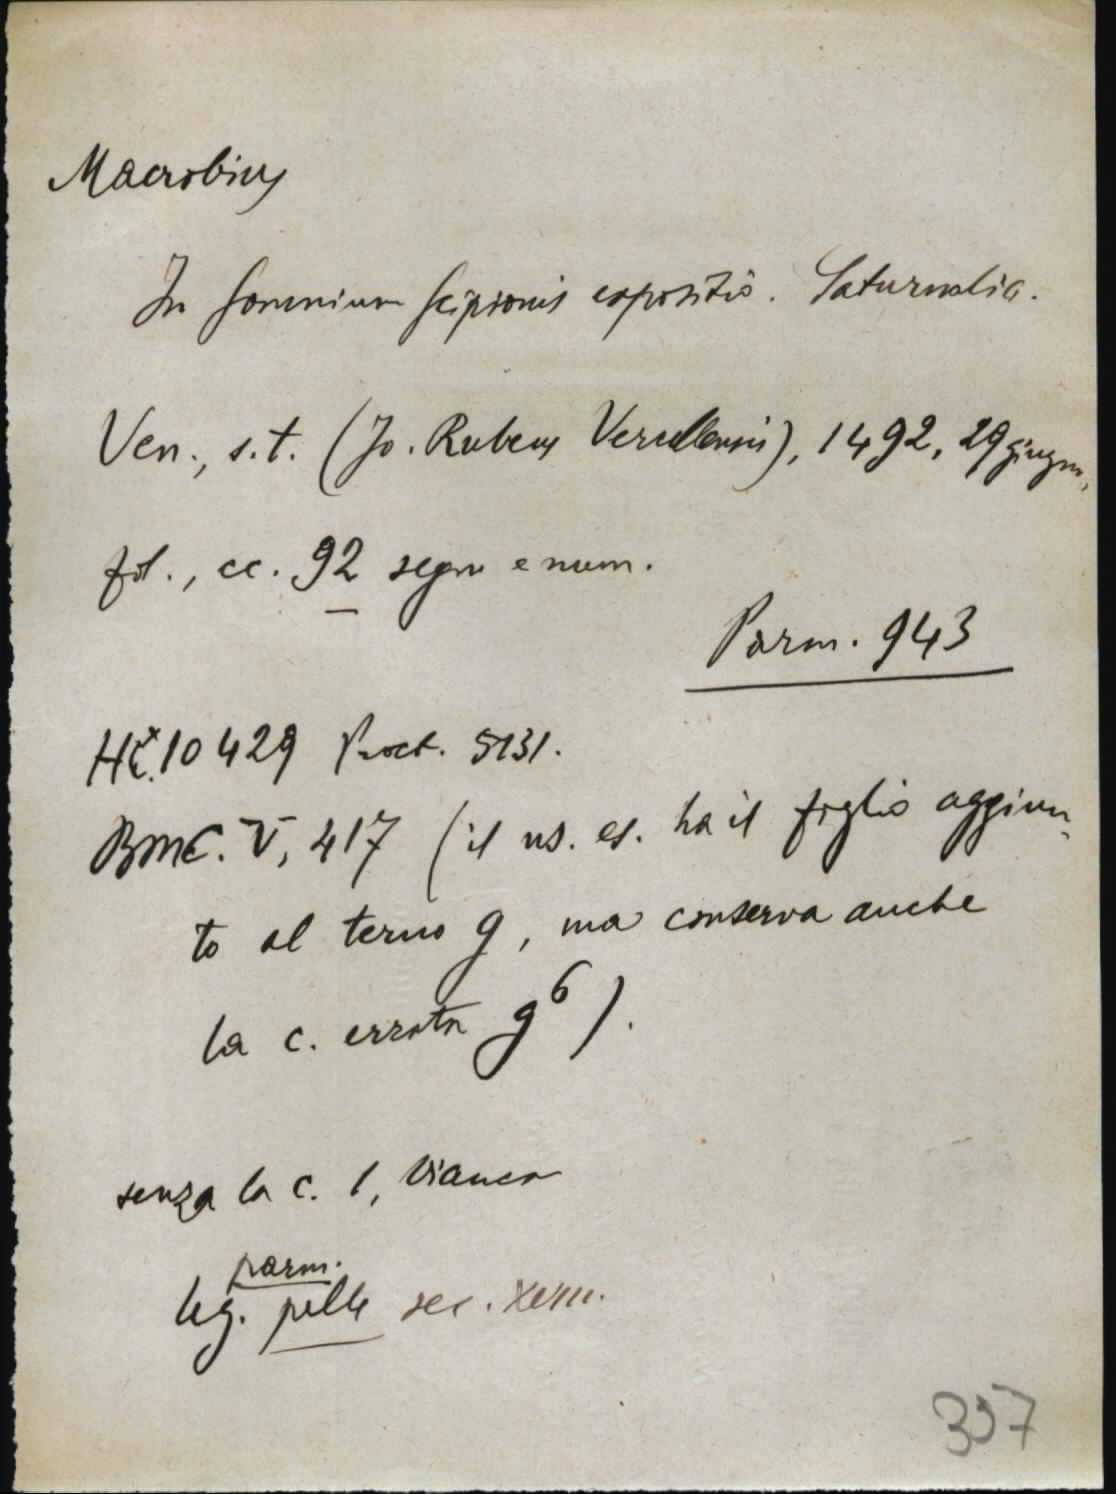 Macrobius
In Somnium Scipionis expositio. Saturnalia.
Ven., s.t. (Jo. Rubeus Vercellensis), 1492, 29 giugno,
fol., cc. 92 segn e num.
Parm. 943
HC.* 10429 Proct. 5131.
BMC. V, 417 (il ns. es. ha il foglio aggiun-
to al terno g, ma conserva anche
la c. errata g6).
senza la c. 1, bianca
parm.
leg. pelle sec. XVIII.